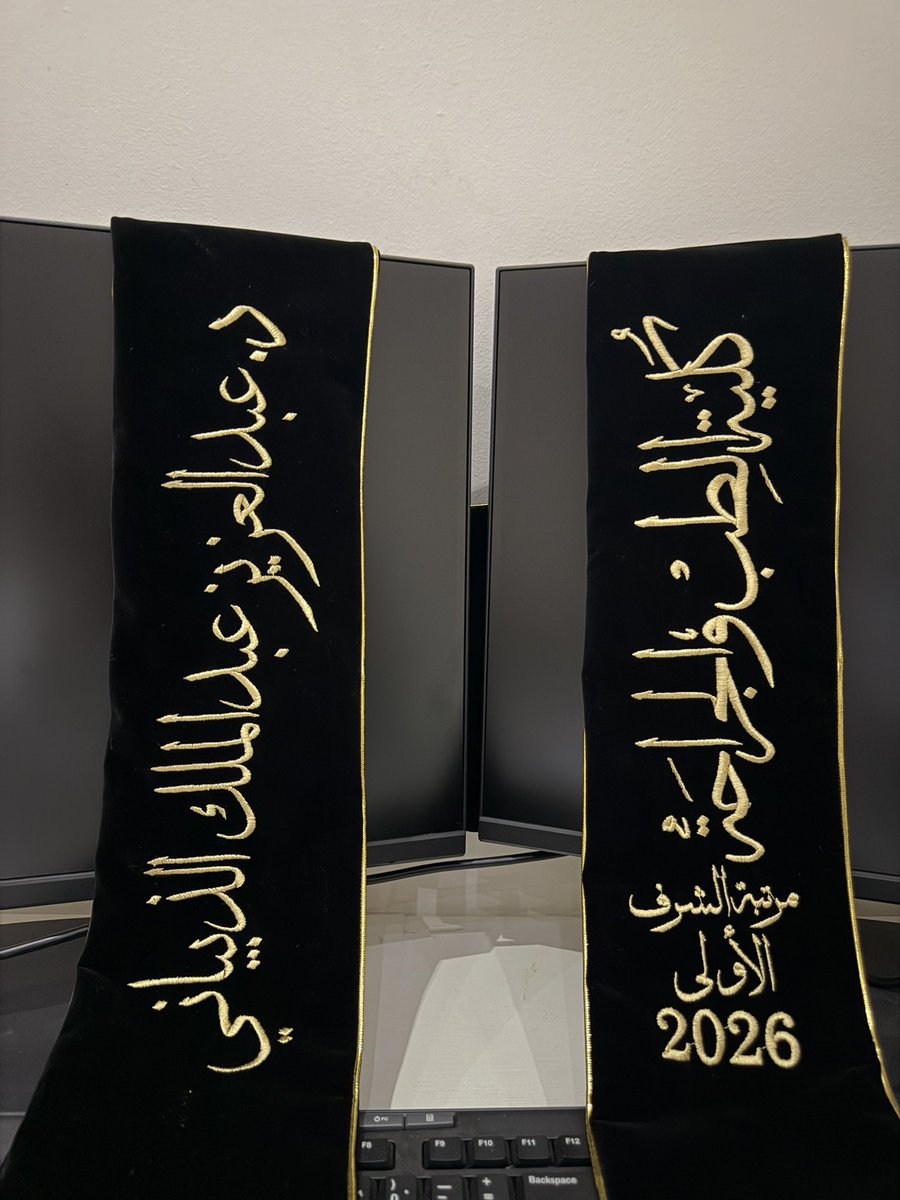 د. عبدالعزيز عبدالملك الذيباني
كُليّة الطِبْ وَالجرَاحَة
مرتبة الشرف
الأولى
2026
PC
F8 F9 F10 F11 F12
) 0 - + = Backspace